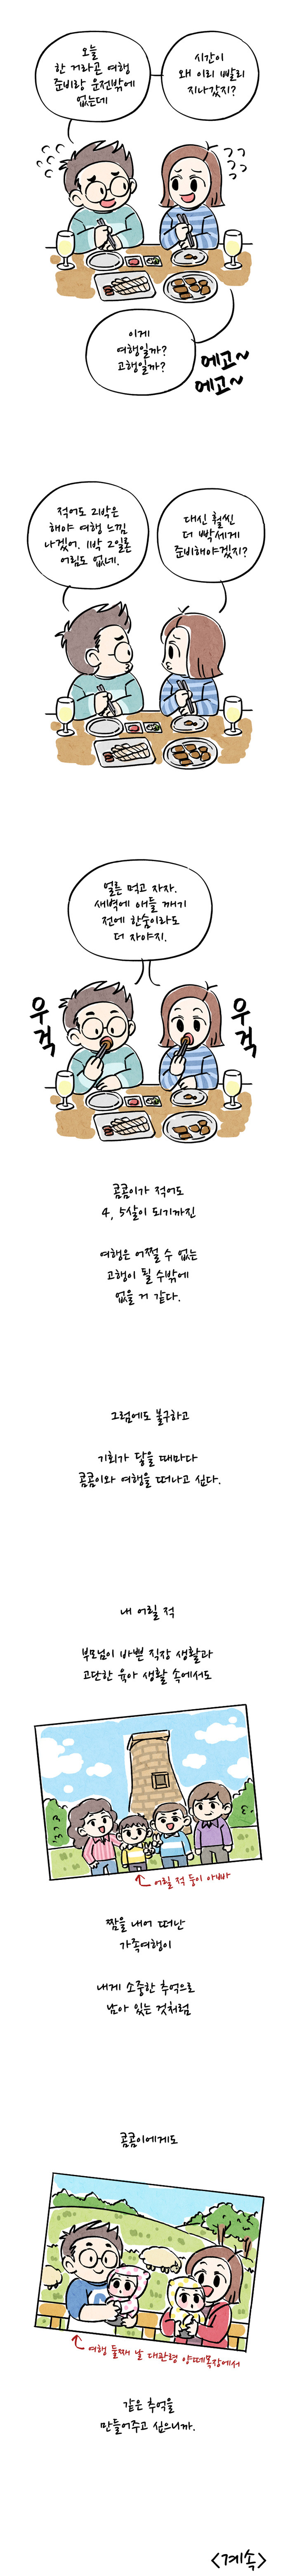 오늘
한 거라곤 여행
준비랑 운전밖에
없는데
시간이
왜 이리 빨리
지나갔지?
이게
여행일까?
고행일까?
에고~
에고~
적어도 2박은
해야 여행 느낌
나겠어. 1박 2일론
어림도 없네.
대신 훨씬
더 빡세게
준비해야겠지?
얼른 먹고 자자.
새벽에 애들 깨기
전에 한숨이라도
더 자야지.
우걱
우걱
콤콤이가 적어도
4, 5살이 되기까진
여행은 어쩔 수 없는
고행이 될 수밖에
없을 거 같다.
그럼에도 불구하고
기회가 닿을 때마다
콤콤이와 여행을 떠나고 싶다.
내 어릴 적
부모님이 바쁜 직장 생활과
고단한 육아 생활 속에서도
어릴 적 둥이 아빠
짬을 내어 떠난
가족여행이
내게 소중한 추억으로
남아 있는 것처럼
콤콤이에게도
여행 둘째 날 대관령 양떼목장에서
같은 추억을
만들어주고 싶으니까.
<계속>